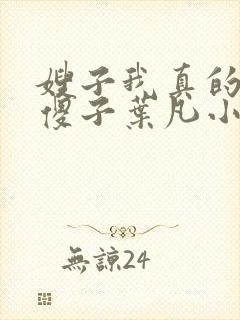 嫂子我真的
傻子葉凡小
無諒24